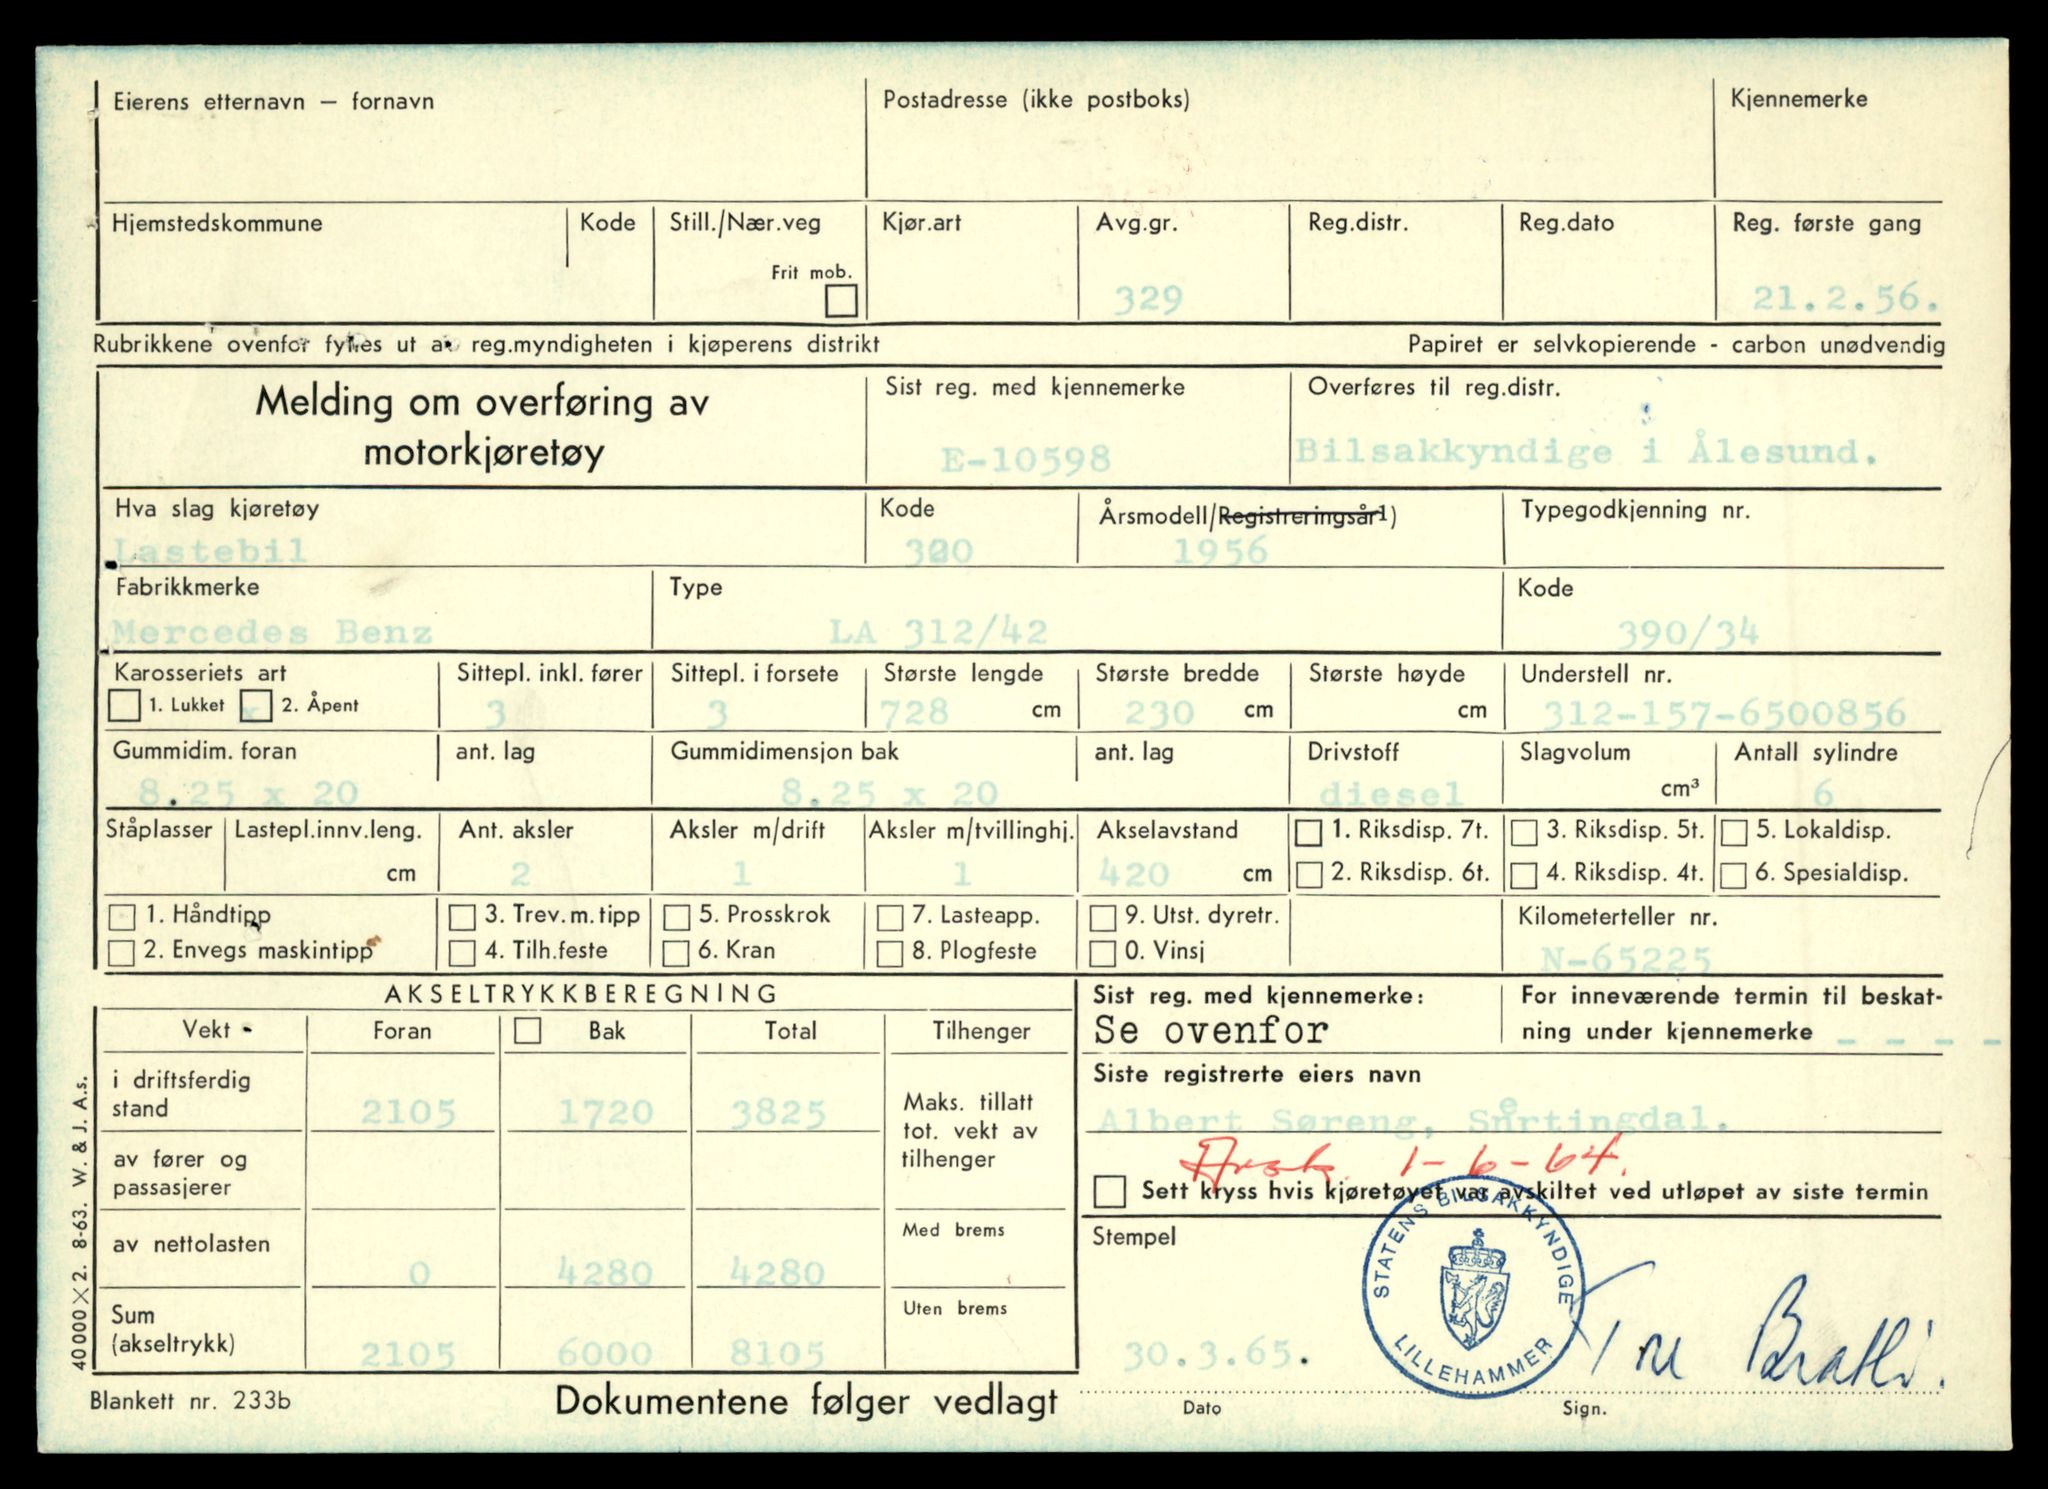 Eierens etternavn — fornavn Postadresse (ikke postboks) Kjennemerke
Hjemstedskommune Kode Still./Nær.veg Kjør.art Avg.gr. Reg.distr. Reg.dato Reg. første gang
Frit mob.
329 21.2.56.
Rubrikkene ovenfor fylles ut av reg.myndigheten i kjøperens distrikt Papiret er selvkopierende - carbon unødvendig
Melding om overføring av
motorkjøretøy
Sist reg. med kjennemerke Overføres til reg.distr.
E-10598 Bilsakkyndige i Ålesund.
Hva slag kjøretøy Kode Årsmodell/Registreringsår1) Typegodkjenning nr.
Lastebil 300 1956
Fabrikkmerke Type Kode
Mercedes Benz LA 312/42 390/34
Karosseriets art Sittepl. inkl. fører Sittepl. i forsete Største lengde Største bredde Største høyde Understell nr.
1. Lukket x 2. Åpent 3 3 728 cm 230 cm cm 312-157-6500856
Gummidim. foran ant. lag Gummidimensjon bak ant. lag Drivstoff Slagvolum Antall sylindre
8.25 x 20 8.25 x 20 diesel cm³ 6
Ståplasser Lastepl.innv.leng. Ant. aksler Aksler m/drift Aksler m/tvillinghj. Akselavstand 1. Riksdisp. 7t. 3. Riksdisp. 5t. 5. Lokaldisp.
cm 2 1 1 420 cm 2. Riksdisp. 6t. 4. Riksdisp. 4t. 6. Spesialdisp.
1. Håndtipp 3. Trev. m. tipp 5. Prosskrok 7. Lasteapp. 9. Utst. dyretr. Kilometerteller nr.
2. Envegs maskintipp 4. Tilh.feste 6. Kran 8. Plogfeste 0. Vinsj N-65225
AKSELTRYKKBEREGNING
Vekt Foran Bak Total Tilhenger
i driftsferdig
stand 2105 1720 3825
Maks. tillatt
tot. vekt av
tilhenger
av fører og
passasjerer
av nettolasten 0 4280 4280
Med brems
Sum
(akseltrykk) 2105 6000 8105
Uten brems
Sist reg. med kjennemerke:
Se ovenfor
For inneværende termin til beskat-
ning under kjennemerke - - - -
Siste registrerte eiers navn
Albert Søreng, Snertingdal.
1-6-64.
Sett kryss hvis kjøretøyet var avskiltet ved utløpet av siste termin
Stempel
STATENS BILSAKKYNDIGE
LILLEHAMMER
30.3.65.
Tre Bratli.
Dato Sign.
40000 X 2. 8-63. W. & J. A.s.
Blankett nr. 233b Dokumentene følger vedlagt